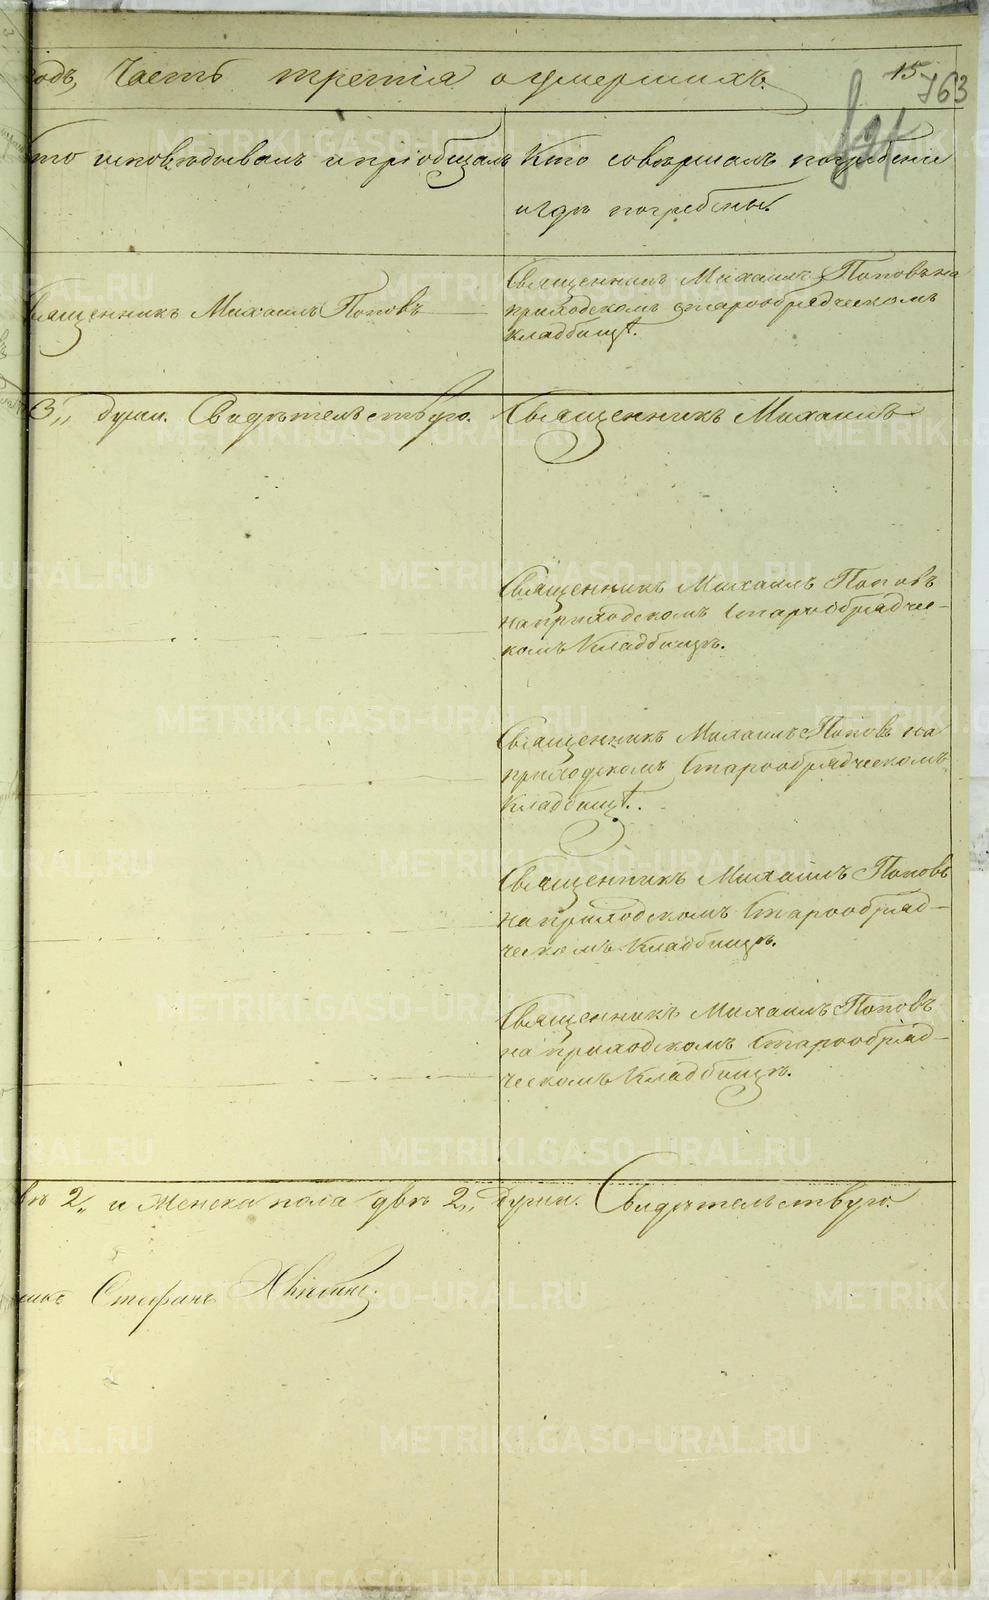 одъ, Часть третія о умершихъ.
15
763
то исповѣдывалъ и пріобщалъ
Кто совершалъ погребеніе
и гдѣ погребены.
Священникъ Михаилъ Поповъ
Священникъ Михаилъ Поповъ на
приходскомъ старообрядческомъ
кладбищѣ.
3,, души. Свидѣтельствую.
Священникъ Михаилъ
Священникъ Михаилъ Поповъ
на приходскомъ Старообрядчес-
комъ Кладбищѣ.
Священникъ Михаилъ Поповъ на
приходскомъ Старообрядческомъ
Кладбищѣ.
Священникъ Михаилъ Поповъ
на приходскомъ Старообряд-
ческомъ Кладбищѣ.
Священникъ Михаилъ Поповъ
на приходскомъ Старообряд-
ческомъ Кладбищѣ.
вѣ 2,, и Женска пола двѣ 2,, души. Свидѣтельствую.
Стефанъ
METRIKI.GASO-URAL.RU